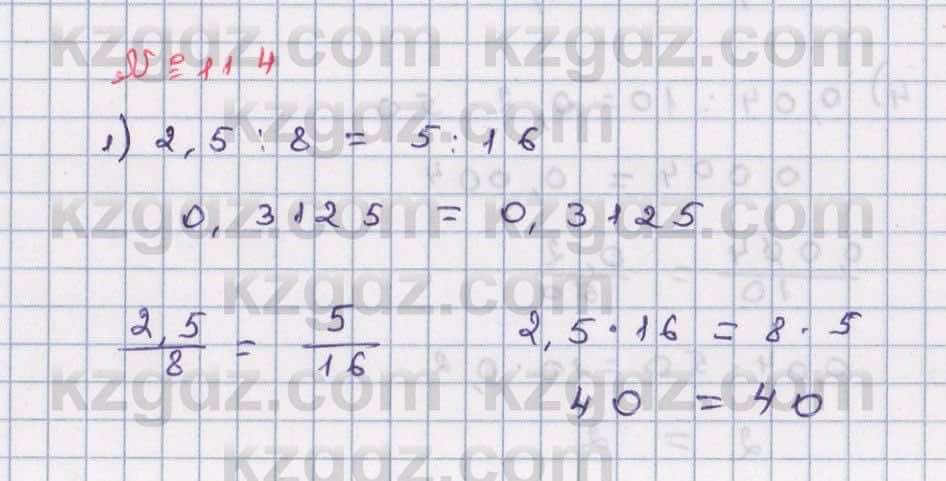 № 114
1) 2,5 : 8 = 5 : 16
0,3125 = 0,3125
2,5/8 = 5/16
2,5 · 16 = 8 · 5
40 = 40
kzgdz.com kzgdz.com
kzgdz.com
kzgdz.com kzgdz.com
kzgdz.com
kzgdz.com kzgdz.com
kzgdz.com